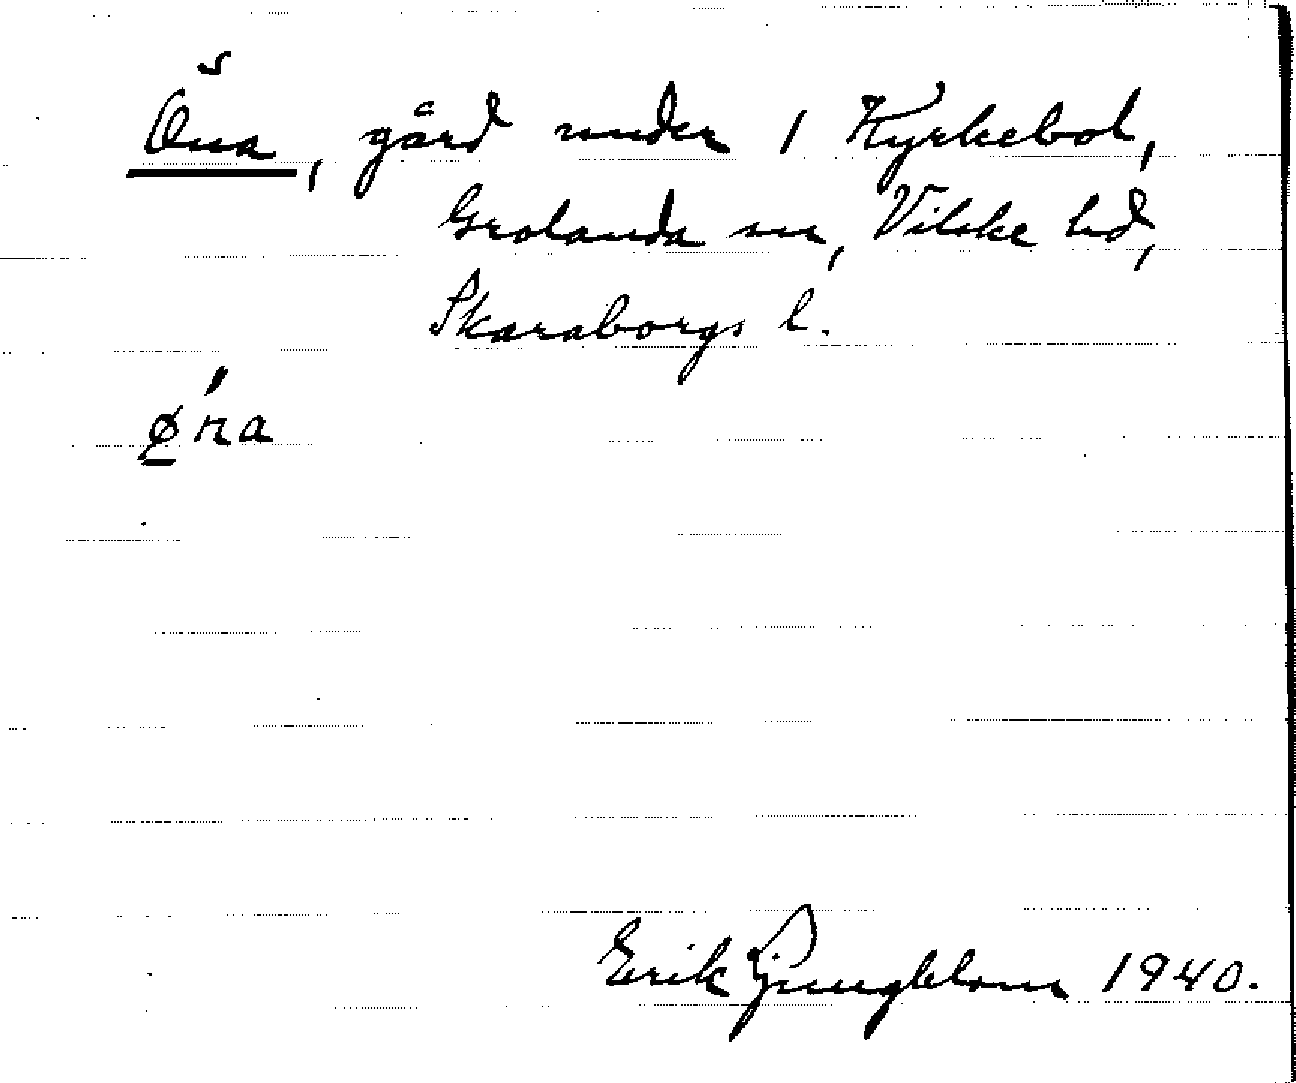 Öna, gård under 1 Kyrkebol,
Grolanda sn, Vilske hd,
Skaraborgs l.
ǿ̱na
Erik Ljungblom 1940.